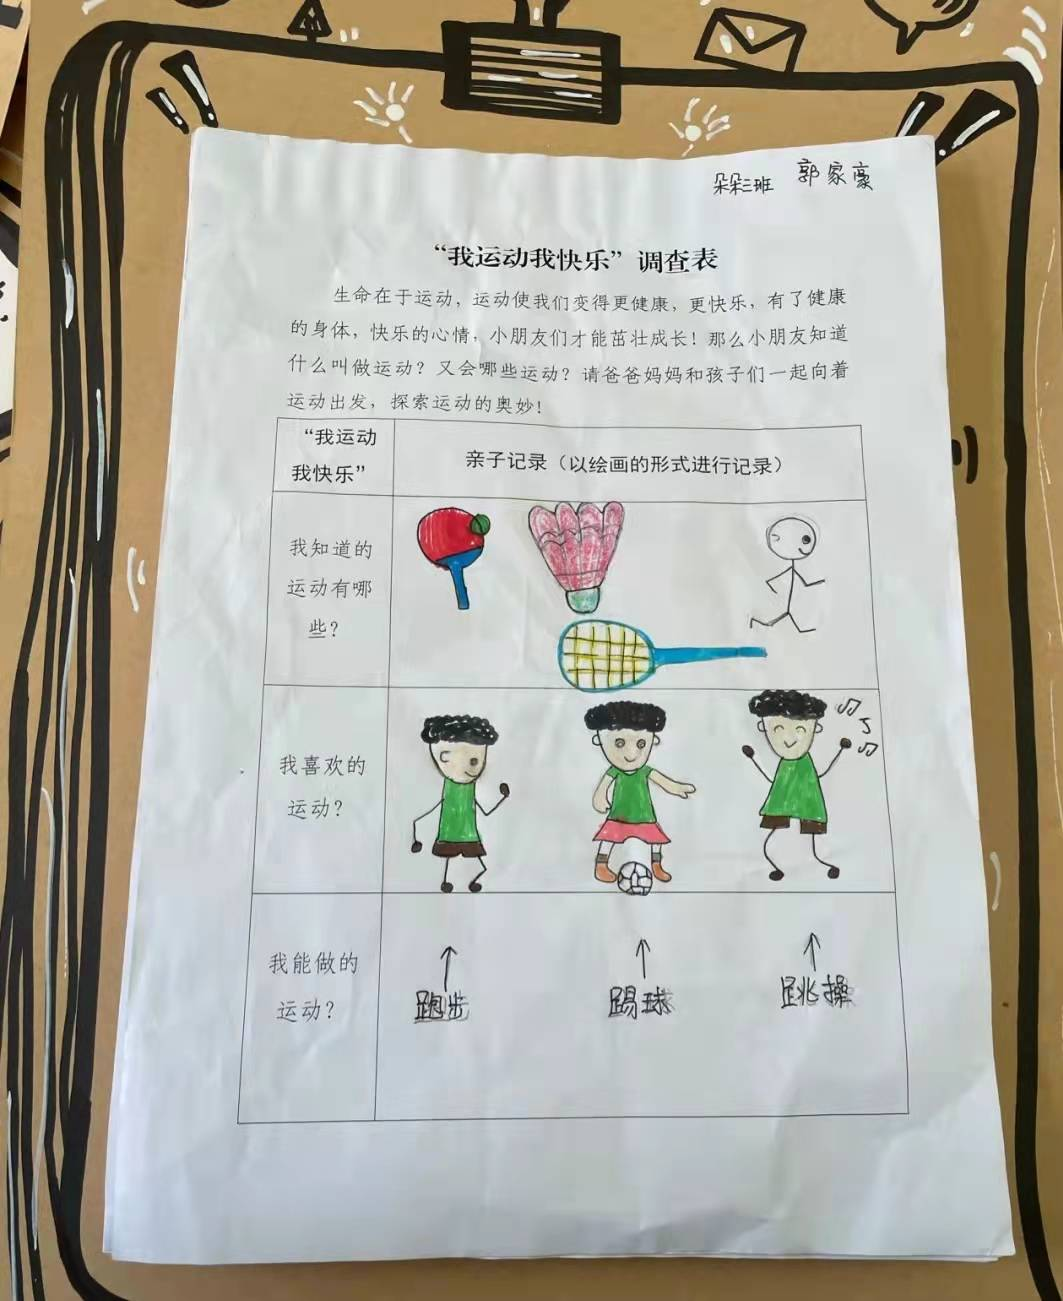 朵朵三班 郭家豪
“我运动我快乐”调查表
生命在于运动，运动使我们变得更健康，更快乐，有了健康
的身体，快乐的心情，小朋友们才能茁壮成长！那么小朋友知道
什么叫做运动？又会哪些运动？请爸爸妈妈和孩子们一起向着
运动出发，探索运动的奥妙！
“我运动
我快乐”
亲子记录（以绘画的形式进行记录）
我知道的
运动有哪
些？
我喜欢的
运动？
我能做的
运动？
跑步 踢球 跳操